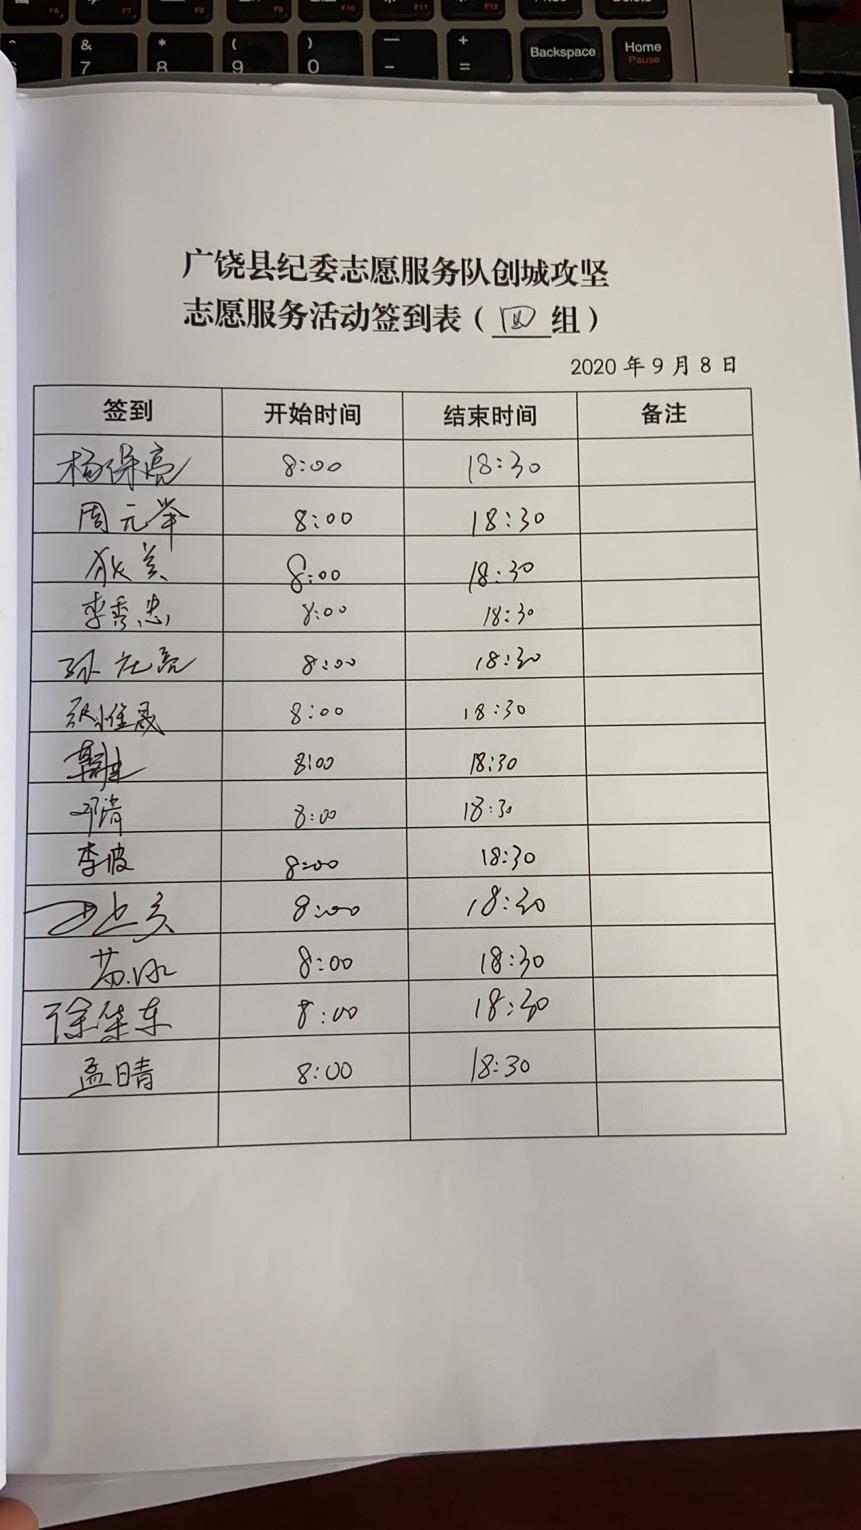 & * ( ) — +
7 8 9 0 - = Backspace Home
Pause
广饶县纪委志愿服务队创城攻坚
志愿服务活动签到表（四组）
2020年9月8日
签到 开始时间 结束时间 备注
杨保亮 8:00 18:30
周元举 8:00 18:30
8:00 18:30
李秀忠 8:00 18:30
孙元亮 8:00 18:30
张惟晟 8:00 18:30
8:00 18:30
邓清 8:00 18:30
李波 8:00 18:30
8:00 18:30
苏冰 8:00 18:30
徐华东 8:00 18:30
孟晴 8:00 18:30